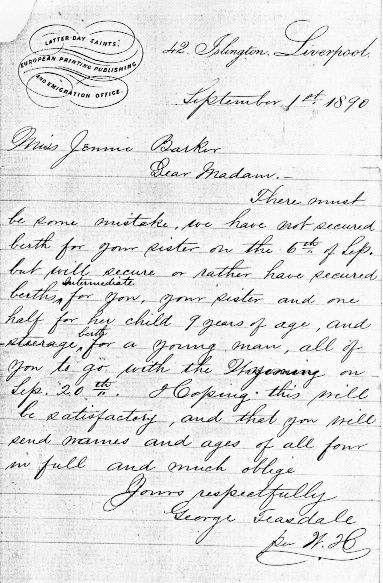 LATTER-DAY SAINTS'
EUROPEAN PRINTING PUBLISHING
AND EMIGRATION OFFICE
42 Islington, Liverpool.
September 1st 1890
Miss Jennie Barker
Dear Madam.-
There must
be some mistake, we have not secured
berth for your sister on the 6th of Sep.
but will secure or rather have secured
Intermediate
berths, for you, your sister and one
half for her child 9 years of age, and
berth
steerage, for a young man, all of
you to go with the Wyoming on
Sep. 20th. Hoping this will
be satisfactory, and that you will
send names and ages of all four
in full and much oblige
Yours respectfully
George Teasdale
per W. H.